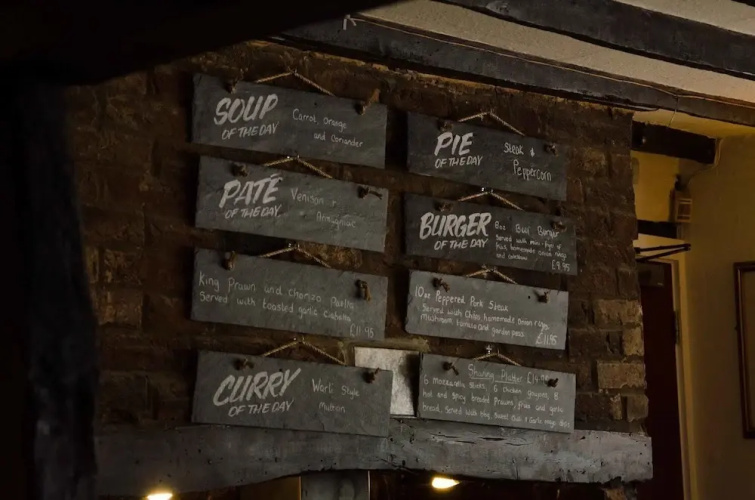 SOUP
OF THE DAY
Carrot, Orange
and Coriander
PATÉ
OF THE DAY
Venison +
Armagnac
King Prawn and Chorizo Paella
Served with toasted garlic Ciabatta
£11.95
CURRY
OF THE DAY
Work Style
Mutton
PIE
OF THE DAY
Steak &
Peppercorn
BURGER
OF THE DAY
8oz Beef Burger
Served with
homemade onion rings
and coleslaw
£9.95
10oz Peppered Pork Steak
Served with Chips, homemade onion rings,
Mushroom, tomato and garden peas
£11.95
Sharing Platter
6 mozzarella sticks, 6 chicken goujons, 8
hot and spicy breaded Prawns, fries and garlic
bread, Served with